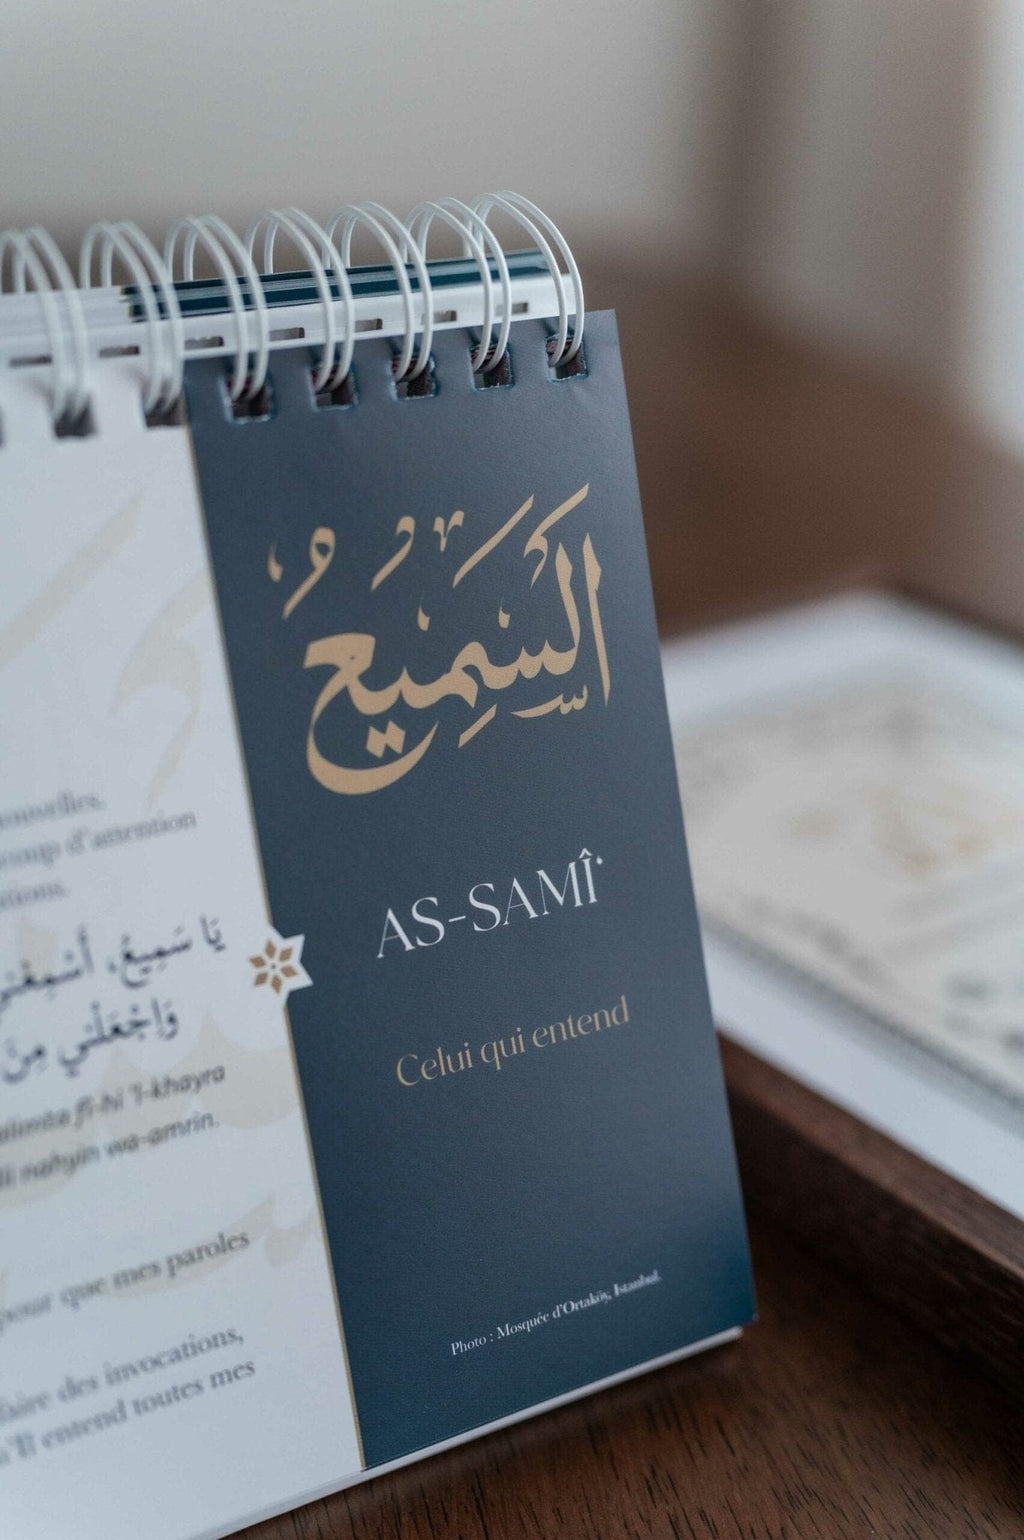 السَّمِيعُ
AS-SAMÎ‘
Celui qui entend
Photo : Mosquée d'Ortaköy, Istanbul.
d'attention
يَا سَمِيعُ، أَسْمِعْنِي
وَاجْعَلْنِي مِنَ
fî-hi 'l-khayra
nahyin wa-amrin.
pour que mes paroles
faire des invocations,
Il entend toutes mes